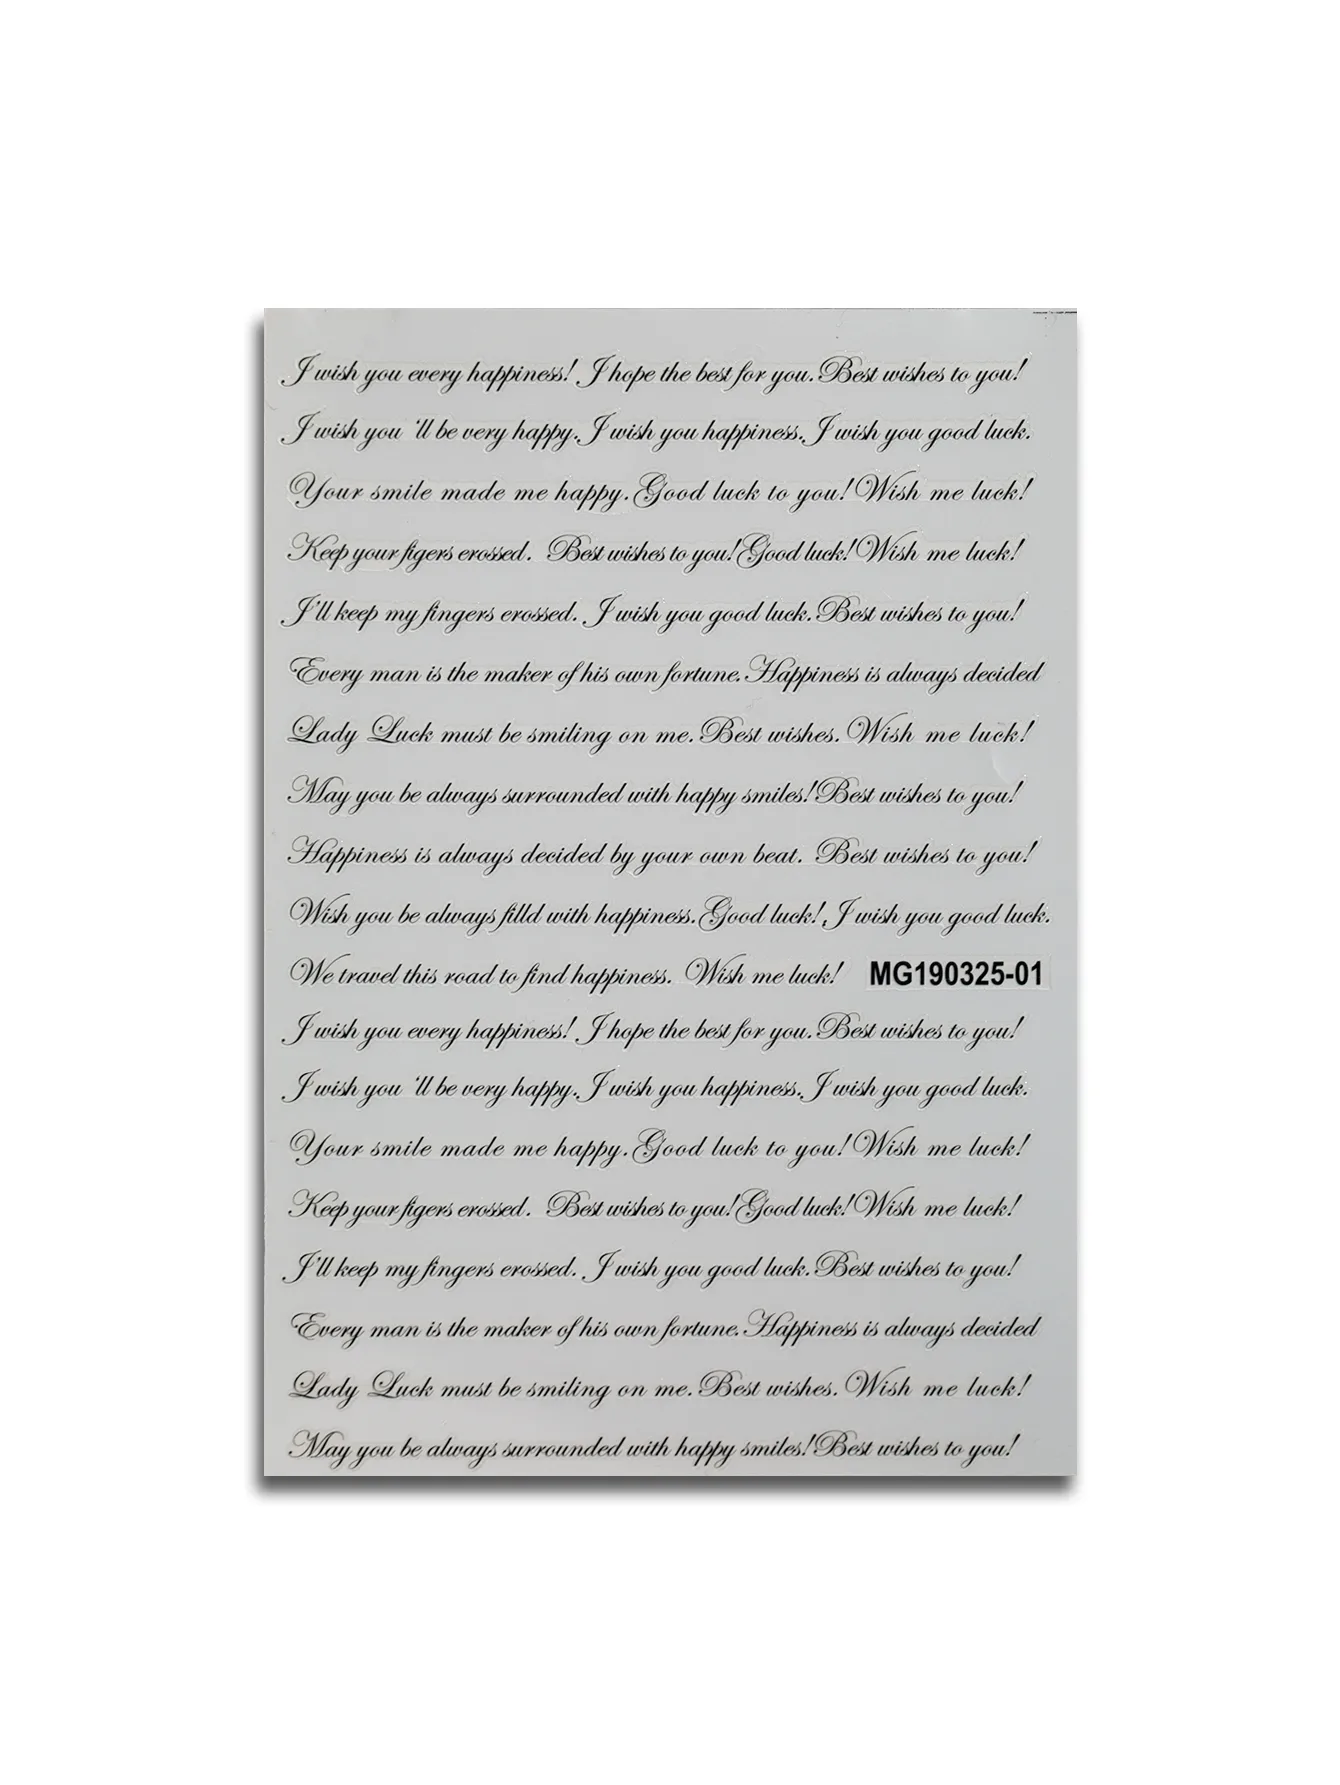 I wish you every happiness! I hope the best for you. Best wishes to you!
I wish you 'll be very happy. I wish you happiness. I wish you good luck.
Your smile made me happy. Good luck to you! Wish me luck!
Keep your figers erossed. Best wishes to you! Good luck! Wish me luck!
I'll keep my fingers erossed. I wish you good luck. Best wishes to you!
Every man is the maker of his own fortune. Happiness is always decided
Lady Luck must be smiling on me. Best wishes. Wish me luck!
May you be always surrounded with happy smiles! Best wishes to you!
Happiness is always decided by your own beat. Best wishes to you!
Wish you be always filld with happiness. Good luck! I wish you good luck.
We travel this road to find happiness. Wish me luck! MG190325-01
I wish you every happiness! I hope the best for you. Best wishes to you!
I wish you 'll be very happy. I wish you happiness. I wish you good luck.
Your smile made me happy. Good luck to you! Wish me luck!
Keep your figers erossed. Best wishes to you! Good luck! Wish me luck!
I'll keep my fingers erossed. I wish you good luck. Best wishes to you!
Every man is the maker of his own fortune. Happiness is always decided
Lady Luck must be smiling on me. Best wishes. Wish me luck!
May you be always surrounded with happy smiles! Best wishes to you!